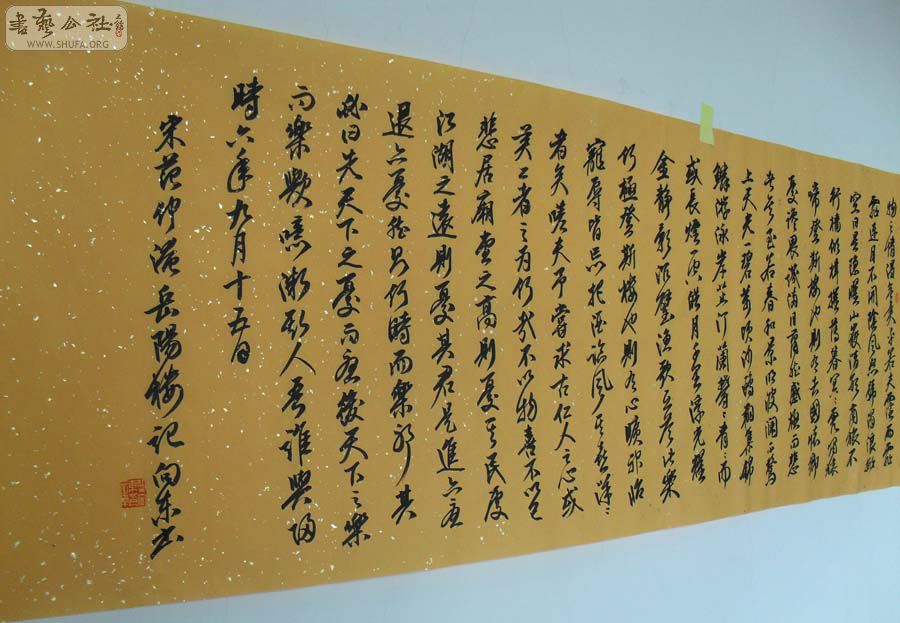 物之情得無異乎若夫霪雨霏
霏連月不開陰風怒號濁浪排
空日星隱曜山岳潛形商旅不
行檣傾楫摧薄暮冥々虎嘯猿
啼登斯樓也則有去國懷鄉
憂讒畏譏滿目蕭然感極而悲
者矣至若春和景明波瀾不驚
上天光一碧萬頃沙鷗翔集錦
鱗游泳岸芷汀蘭鬱々青々而
或長煙一空皓月千里浮光耀
金靜影沉璧漁歌互答此樂
何極登斯樓也則有心曠神怡
寵辱皆忘把酒臨風其喜洋々
者矣嗟夫予嘗求古仁人之心或
異二者之為何哉不以物喜不以己
悲居廟堂之高則憂其民處
江湖之遠則憂其君是進亦憂
退亦憂然則何時而樂耶其
必曰先天下之憂而憂後天下之樂
而樂歟噫微斯人吾誰與歸
時六年九月十五日
宋范仲淹岳陽樓記向東書
書藝公社
WWW.SHUFA.ORG